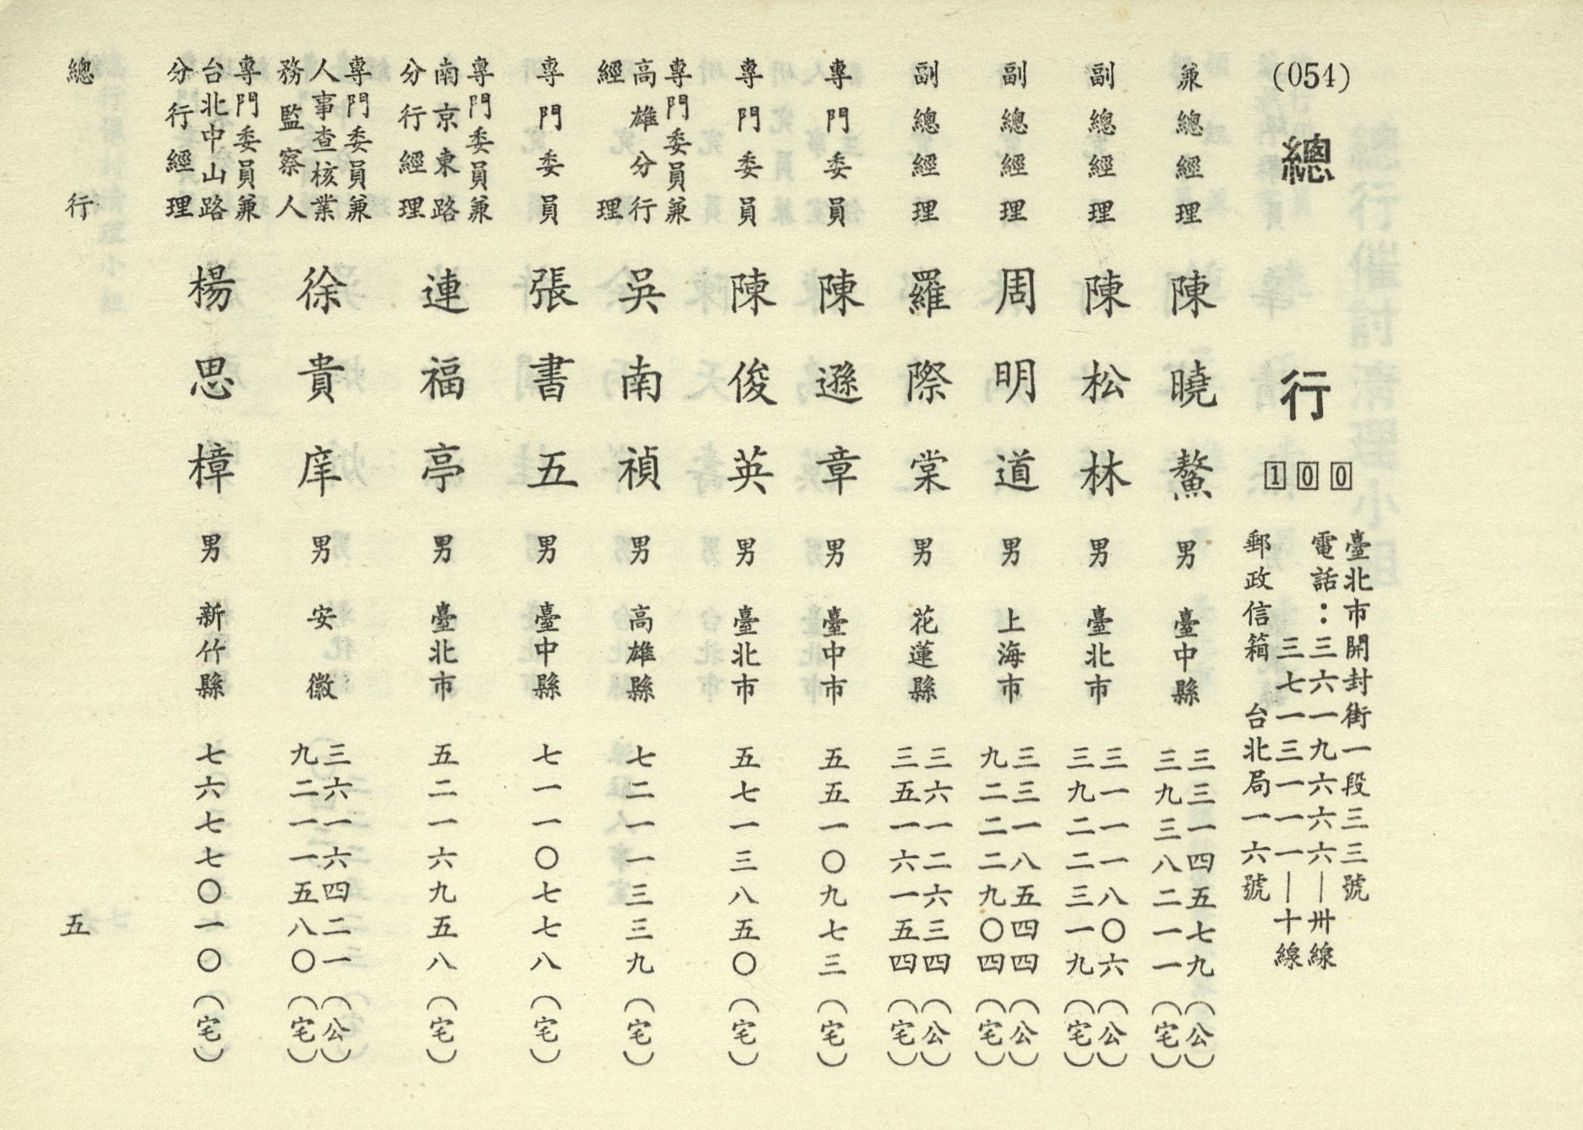 (054)
總行 100
臺北市開封街一段三三號
電話：三六一九六六六｜卅線
三七一三一一一｜十線
郵政信箱 台北局一六號
兼總經理 陳曉鰲 男 臺中縣 三三一四五七九（公）
三九三八二一一（宅）
副總經理 陳松林 男 臺北市 三一一一八〇六（公）
三九二二三一九（宅）
副總經理 周明道 男 上海市 三三一八五四四（公）
九二二二九〇四（宅）
副總經理 羅際棠 男 花蓮縣 三六一二六三四（公）
三五一六一五四（宅）
專門委員 陳遜章 男 臺中市 五五一〇九七三（宅）
專門委員 陳俊英 男 臺北市 五七一三八五〇（宅）
專門委員兼
高雄分行
經理 吳南禎 男 高雄縣 七二一一三三九（宅）
專門委員 張書五 男 臺中縣 七一一〇七七八（宅）
專門委員兼
南京東路
分行經理 連福亭 男 臺北市 五二一六九五八（宅）
專門委員兼
人事查核業
務監察人 徐貴庠 男 安徽 三六一六四二一（公）
九二一一五八〇（宅）
專門委員兼
台北中山路
分行經理 楊思樟 男 新竹縣 七六七七〇一〇（宅）
總行 五